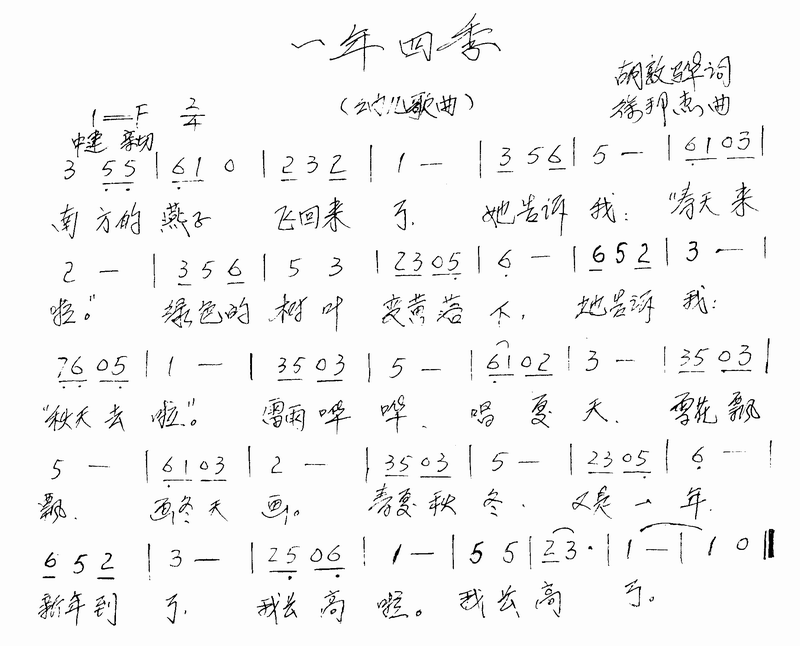 一年四季
(幼儿歌曲)
胡敦骅词
1=F 2/4
徐邦杰曲
中速 亲切
3 55 | 61 0 | 232 | 1 — | 356 | 5 — | 6103 |
南方的燕子 飞回来了. 她告诉我: “春天来
2 — | 356 | 5 3 | 2305 | 6 — | 652 | 3 — |
啦。” 绿色的树叶 变黄落下, 她告诉我:
7605 | 1 — | 3503 | 5 — | 6102 | 3 — | 3503 |
“秋天去啦”。 雷雨哗哗、唱夏天. 雪花飘
5 — | 6103 | 2 — | 3503 | 5 — | 2305 | 6 — |
飘. 画冬天画。 春夏秋冬. 又是一年.
652 | 3 — | 2506 | 1 — | 5 5 | 23· | 1 — | 1 0 ‖
新年到了. 我长高啦。我长高了。